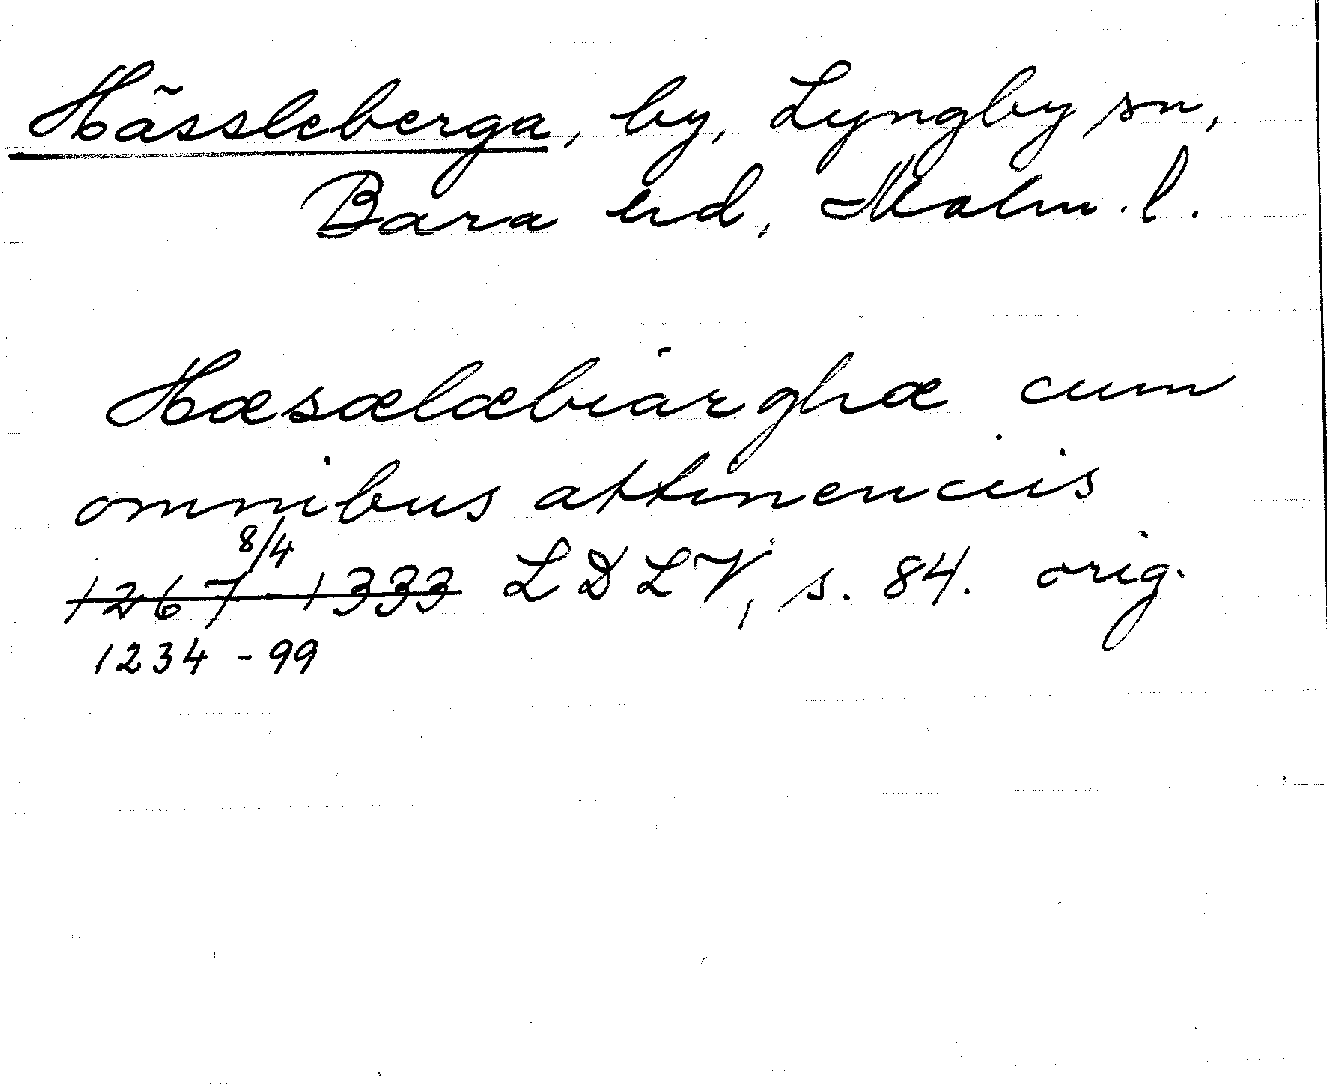 Hässleberga, by, Lyngby sn,
Bara hd, Malm. l.
Hæsælæbiarghæ cum
omnibus attinenciis
8/4
1267-1333 LDLV, s. 84. orig.
1234-99